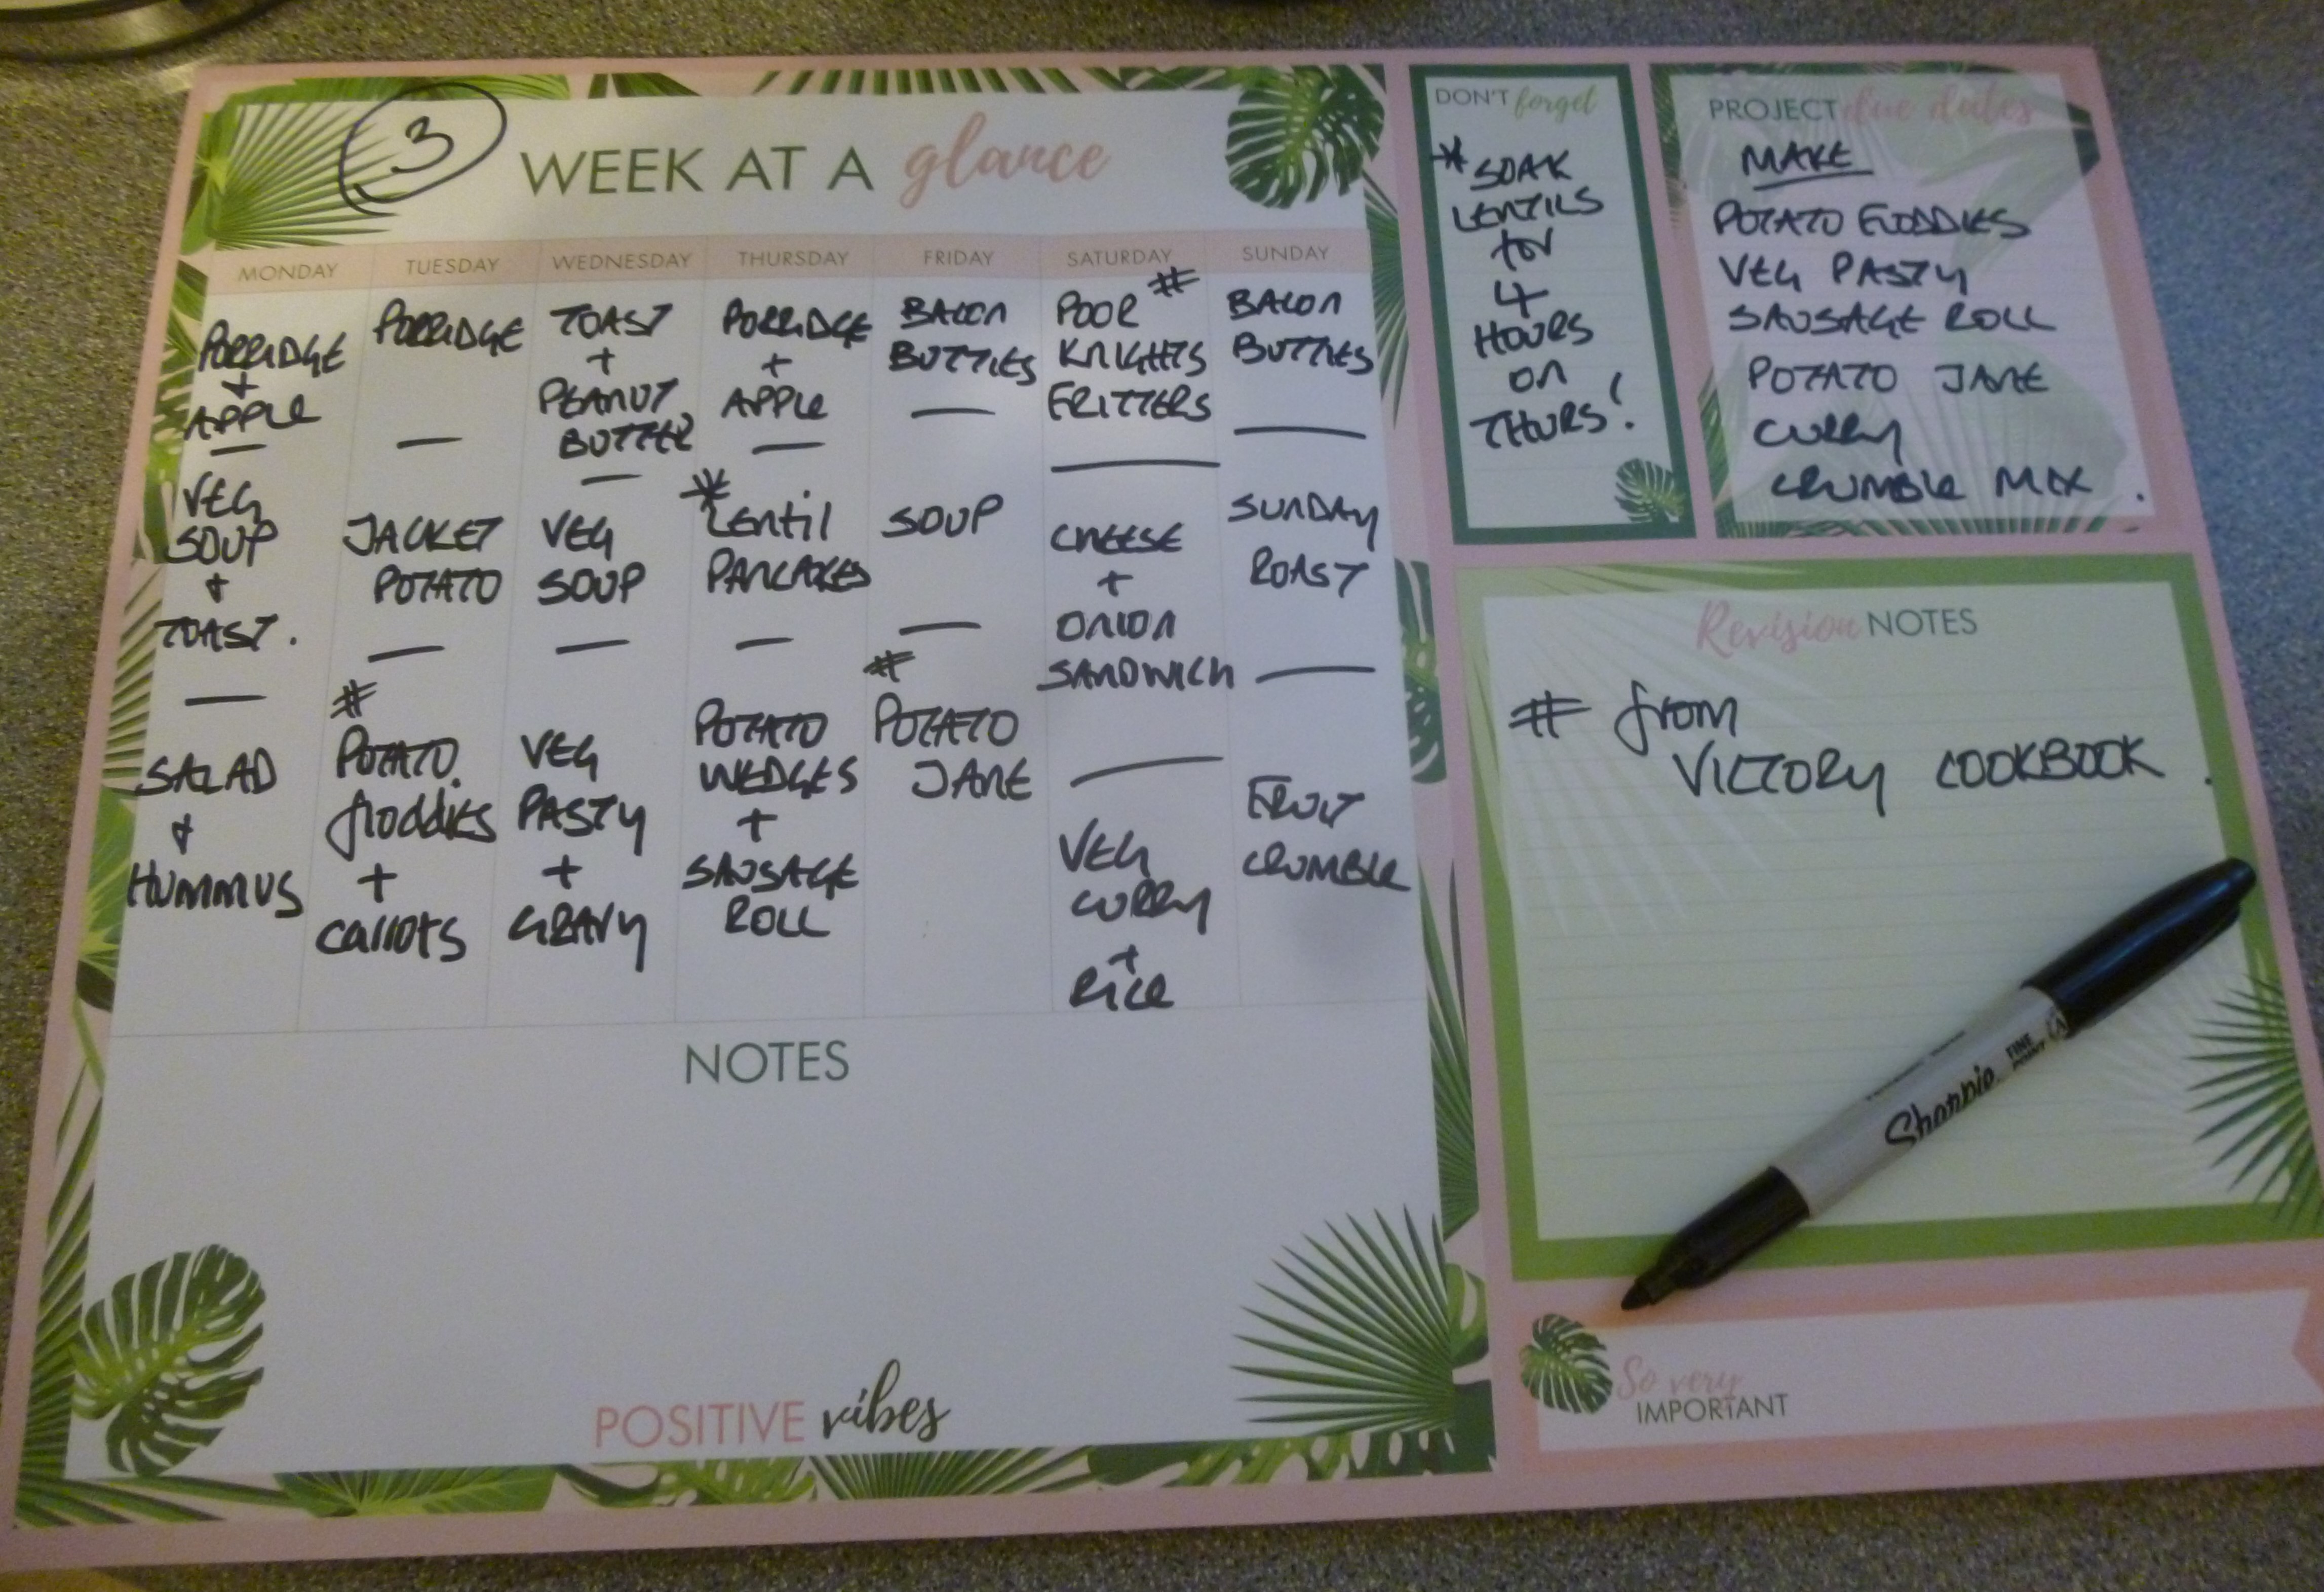 3
WEEK AT A glance
MONDAY
PORRIDGE
+
APPLE
—
VEG
SOUP
+
TOAST.
—
SALAD
+
HUMMUS
TUESDAY
PORRIDGE
—
JACKET
POTATO
—
#
POTATO
floddies
+
carrots
WEDNESDAY
TOAST
+
PEANUT
BUTTER
—
VEG
SOUP
—
VEG
PASTY
+
GRAVY
THURSDAY
PORRIDGE
+
APPLE
—
*
Lentil
PANCAKES
—
POTATO
WEDGES
+
SAUSAGE
ROLL
FRIDAY
BACON
BUTTIES
—
SOUP
—
#
POTATO
JANE
SATURDAY
POOR #
KNIGHTS
FRITTERS
—
CHEESE
+
ONION
SANDWICH
—
VEG
CURRY
+
RICE
SUNDAY
BACON
BUTTIES
—
SUNDAY
ROAST
—
FRUIT
CRUMBLE
NOTES
POSITIVE vibes
DON'T forget
* SOAK
LENTILS
for
4
HOURS
on
THURS!
PROJECT due dates
MAKE
POTATO FLODDIES
VEG PASTY
SAUSAGE ROLL
POTATO JANE
CURRY
CRUMBLE MIX.
Revision NOTES
# from
VICTORY COOKBOOK.
Sharpie
FINE
So very
IMPORTANT